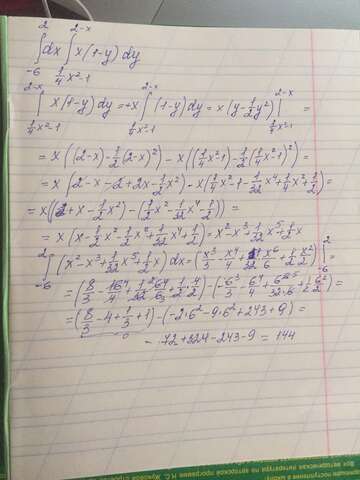 ∫_{-6}^{2} dx ∫_{1/4 x²-1}^{2-x} x(1-y) dy
∫_{1/4 x²-1}^{2-x} x(1-y) dy = x ∫_{1/4 x²-1}^{2-x} (1-y) dy = x (y - 1/2 y²) |_{1/4 x²-1}^{2-x} =
= x ((2-x) - 1/2 (2-x)²) - x ((1/4 x²-1) - 1/2 (1/4 x²-1)²) =
= x (2 - x - 2 + 2x - 1/2 x²) - x (1/4 x² - 1 - 1/32 x⁴ + 1/4 x² + 1/2) =
= x ((2 + x - 1/2 x²) - (1/2 x² - 1/32 x⁴ - 1/2)) =
= x (x - 1/2 x² - 1/2 x² + 1/32 x⁴ + 1/2) = x² - x³ + 1/32 x⁵ + 1/2 x
∫_{-6}^{2} (x² - x³ + 1/32 x⁵ + 1/2 x) dx = (x³/3 - x⁴/4 + 1/32 x⁶/6 + 1/2 x²/2) |_{-6}^{2} =
= (8/3 - 16/4 + 1/32 64/6 + 1/2 4/2) - (-6³/3 - 6⁴/4 + 6⁶/32·6 + 1/2 6²/2) =
= (8/3 - 4 + 1/3 + 1) - (-2·6² - 9·6² + 243 + 9) =
0
- 72 + 324 - 243 - 9 = 144